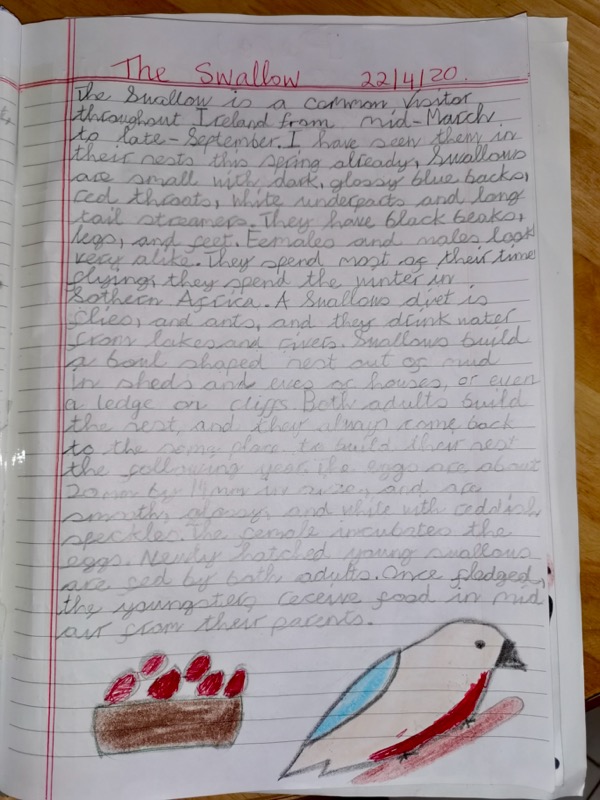 The Swallow 22/4/20.
The Swallow is a common visitor
throughout Ireland from mid-March
to late-September. I have seen them in
their nests this spring already, Swallows
are small with dark, glossy blue backs,
red throats, white underparts and long
tail streamers. They have black beaks,
legs, and feet. Females and males look
very alike. They spend most of their time
flying, they spend the winter in
Sothern Africa. A Swallows diet is
flies, and ants, and they drink water
from lakes and rivers. Swallows build
a bowl shaped nest out of mud
in sheds and eves of houses, or even
a ledge on cliffs. Both adults build
the nest, and they always come back
to the same place to build their nest
the following year. The eggs are about
20mm by 14mm in size, and are
smooth, glossy, and white with reddish
speckles. The female incubates the
eggs. Newly hatched young swallows
are fed by both adults. Once fledged,
the youngsters receive food in mid
air from their parents.